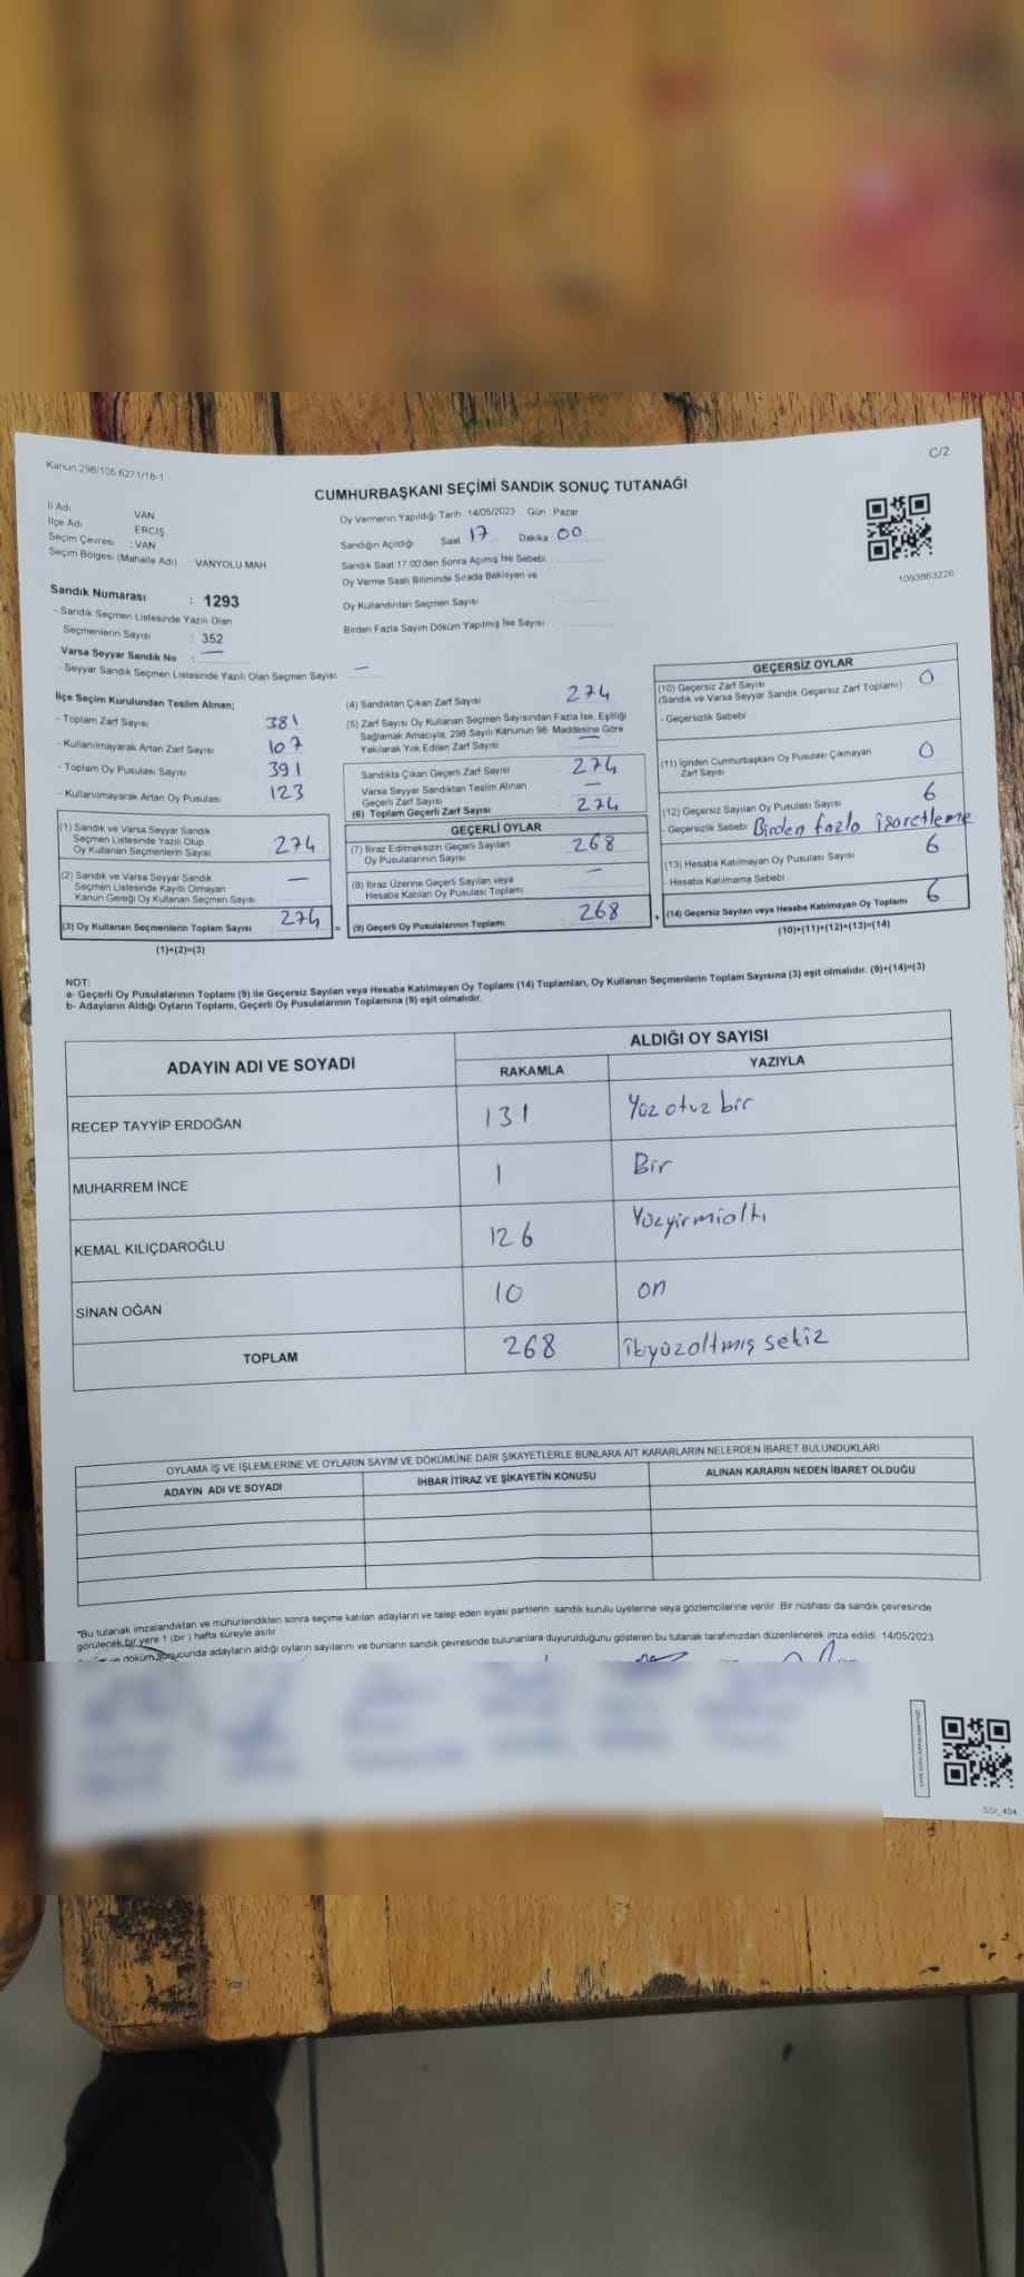 Kanun 298/105 6271/18-1
C/2
CUMHURBAŞKANI SEÇİMİ SANDIK SONUÇ TUTANAĞI
İl Adı VAN
İlçe Adı ERCİŞ
Seçim Çevresi : VAN
Seçim Bölgesi (Mahalle Adı) VANYOLU MAH
Sandık Numarası : 1293
- Sandık Seçmen Listesinde Yazılı Olan
Seçmenlerin Sayısı : 352
Varsa Seyyar Sandık No : —
- Seyyar Sandık Seçmen Listesinde Yazılı Olan Seçmen Sayısı —
Oy Vermenin Yapıldığı Tarih 14/05/2023 Gün : Pazar
Sandığın Açıldığı Saat 17 Dakika 00
Sandık Saat 17 00'den Sonra Açılmış İse Sebebi
Oy Verme Saati Bitiminde Sırada Bekleyen ve
Oy Kullandırılan Seçmen Sayısı
Birden Fazla Sayım Döküm Yapılmış İse Sayısı
1093863226
İlçe Seçim Kurulundan Teslim Alınan;
- Toplam Zarf Sayısı 381
- Kullanılmayarak Artan Zarf Sayısı 107
- Toplam Oy Pusulası Sayısı 391
- Kullanılmayarak Artan Oy Pusulası 123
(1) Sandık ve Varsa Seyyar Sandık
Seçmen Listesinde Yazılı Olup
Oy Kullanan Seçmenlerin Sayısı 274
(2) Sandık ve Varsa Seyyar Sandık
Seçmen Listesinde Kayıtlı Olmayan
Kanun Gereği Oy Kullanan Seçmen Sayısı —
(3) Oy Kullanan Seçmenlerin Toplam Sayısı 274
(1)+(2)=(3)
(4) Sandıktan Çıkan Zarf Sayısı 274
(5) Zarf Sayısı Oy Kullanan Seçmen Sayısından Fazla İse, Eşitliği
Sağlamak Amacıyla; 298 Sayılı Kanunun 98. Maddesine Göre
Yakılarak Yok Edilen Zarf Sayısı —
Sandıkta Çıkan Geçerli Zarf Sayısı 274
Varsa Seyyar Sandıktan Teslim Alınan
Geçerli Zarf Sayısı —
(6) Toplam Geçerli Zarf Sayısı 274
GEÇERLİ OYLAR
(7) İtiraz Edilmeksizin Geçerli Sayılan
Oy Pusulalarının Sayısı 268
(8) İtiraz Üzerine Geçerli Sayılan veya
Hesaba Katılan Oy Pusulası Toplamı —
= (9) Geçerli Oy Pusulalarının Toplamı 268
GEÇERSİZ OYLAR
(10) Geçersiz Zarf Sayısı
(Sandık ve Varsa Seyyar Sandık Geçersiz Zarf Toplamı) 0
- Geçersizlik Sebebi
(11) İçinden Cumhurbaşkanı Oy Pusulası Çıkmayan
Zarf Sayısı 0
(12) Geçersiz Sayılan Oy Pusulası Sayısı 6
- Geçersizlik Sebebi Birden fazla işaretleme
(13) Hesaba Katılmayan Oy Pusulası Sayısı 6
- Hesaba Katılmama Sebebi
+ (14) Geçersiz Sayılan veya Hesaba Katılmayan Oy Toplamı 6
(10)+(11)+(12)+(13)=(14)
NOT:
a- Geçerli Oy Pusulalarının Toplamı (9) ile Geçersiz Sayılan veya Hesaba Katılmayan Oy Toplamı (14) Toplamları, Oy Kullanan Seçmenlerin Toplam Sayısına (3) eşit olmalıdır. (9)+(14)=(3)
b- Adayların Aldığı Oyların Toplamı, Geçerli Oy Pusulalarının Toplamına (9) eşit olmalıdır.
ADAYIN ADI VE SOYADI ALDIĞI OY SAYISI
RAKAMLA YAZIYLA
RECEP TAYYİP ERDOĞAN 131 Yüz otuz bir
MUHARREM İNCE 1 Bir
KEMAL KILIÇDAROĞLU 126 Yüzyirmialtı
SİNAN OĞAN 10 on
TOPLAM 268 ikiyüzaltmış sekiz
OYLAMA İŞ VE İŞLEMLERİNE VE OYLARIN SAYIM VE DÖKÜMÜNE DAİR ŞİKAYETLERLE BUNLARA AİT KARARLARIN NELERDEN İBARET BULUNDUKLARI
ADAYIN ADI VE SOYADI İHBAR İTİRAZ VE ŞİKAYETİN KONUSU ALINAN KARARIN NEDEN İBARET OLDUĞU
"Bu tutanak imzalandıktan ve mühürlendikten sonra seçime katılan adayların ve talep eden siyasi partilerin sandık kurulu üyelerine veya gözlemcilerine verilir. Bir nüshası da sandık çevresinde
görülecek bir yere 1 (bir) hafta süreyle asılır.
döküm sonucunda adayların aldığı oyların sayılarını ve bunların sandık çevresinde bulunanlara duyurulduğunu gösteren bu tutanak tarafımızdan düzenlenerek imza edildi. 14/05/2023